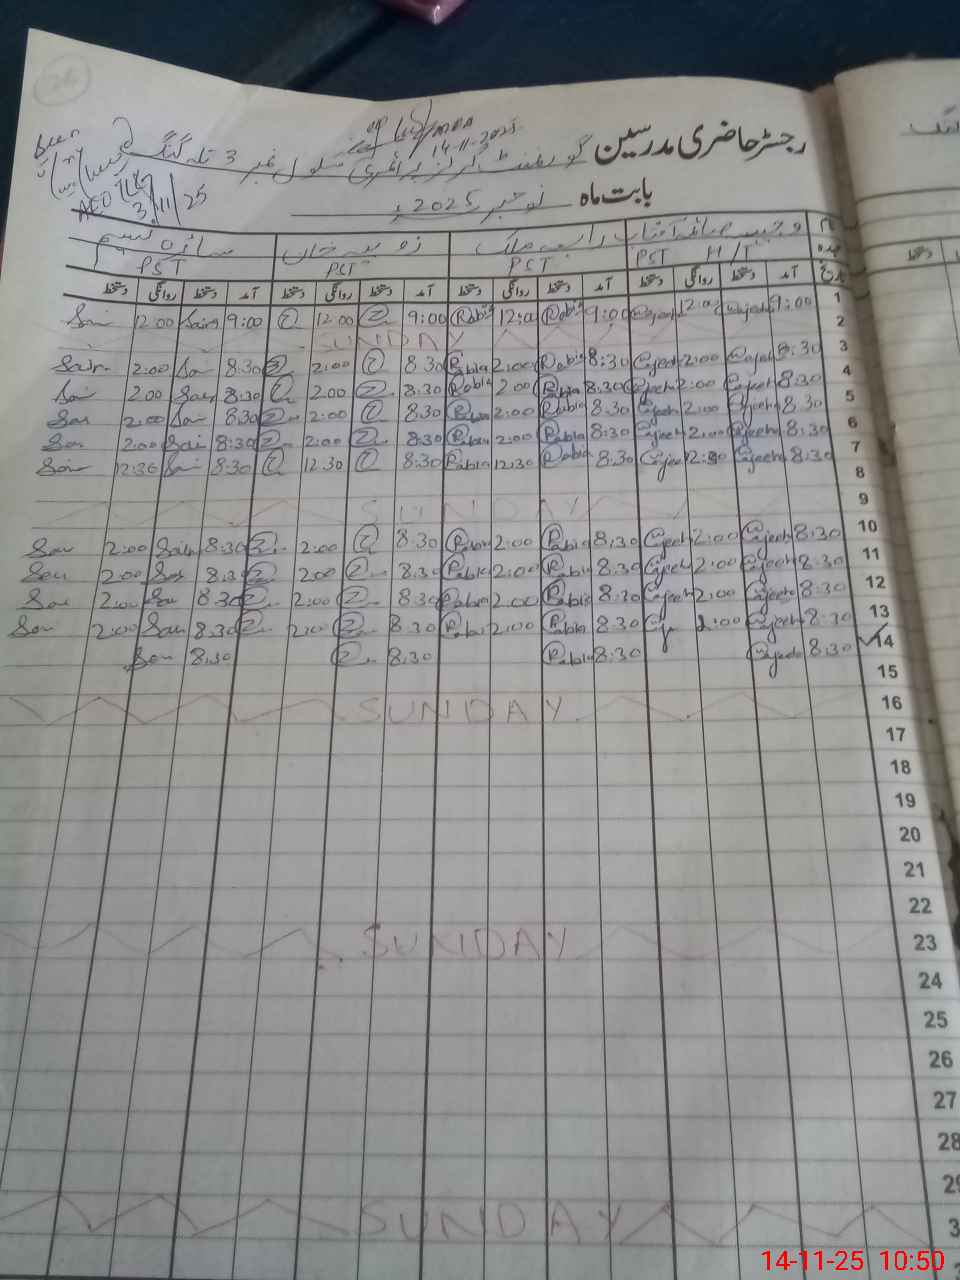 رجسٹر حاضری مدرسین گورنمنٹ گرلز پرائمری سکول نمبر 3 تلہ گنگ
14-11-2025
بابت ماہ نومبر 2025ء
AEO
3/11/25
وجیہہ صائمہ آفتاب رابعہ ملک زوبیہ خان سائرہ نسیم
عہدہ PST H/T PST PST PST
تاریخ آمد دستخط روانگی دستخط آمد دستخط روانگی دستخط آمد دستخط روانگی دستخط آمد دستخط روانگی دستخط
1 9:00 Wajeeh 12:00 Wajeeh 9:00 Rabia 12:00 Rabia 9:00 Z 12:00 Z 9:00 Saira 12:00 Sai
2 SUNDAY
3 8:30 Wajeeh 2:00 Wajeeh 8:30 Rabia 2:00 Rabia 8:30 Z 2:00 Z 8:30 Sa 2:00 Saira
4 8:30 Wajeeh 2:00 Wajeeh 8:30 Rabia 2:00 Rabia 8:30 Z 2:00 Z 8:30 Sai 2:00 Sai
5 8:30 Wajeeh 2:00 Wajeeh 8:30 Rabia 2:00 Rabia 8:30 Z 2:00 Z 8:30 Sai 2:00 Sai
6 8:30 Wajeeh 2:00 Wajeeh 8:30 Rabia 2:00 Rabia 8:30 Z 2:00 Z 8:30 Sai 2:00 Sai
7 8:30 Wajeeh 12:30 Wajeeh 8:30 Rabia 12:30 Rabia 8:30 Z 12.30 Z 8:30 Sai 12:30 Sai
8
9 SUNDAY
10 8:30 Wajeeh 2:00 Wajeeh 8:30 Rabia 2:00 Rabia 8:30 Z 2:00 Z 8:30 Saira 2:00 Sai
11 8:30 Wajeeh 2:00 Wajeeh 8:30 Rabia 2:00 Rabia 8:30 Z 2:00 Z 8:30 Sai 2:00 Sai
12 8:30 Wajeeh 2:00 Wajeeh 8:30 Rabia 2:00 Rabia 8:30 Z 2:00 Z 8:30 Sai 2:00 Sai
13 8:30 Wajeeh 2:00 8:30 Rabia 2:00 Rabia 8:30 Z 2:00 Z 8:30 Sai 2:00 Sai
14 8:30 Wajeeh 8:30 Rabia 8:30 Z 8:30 Sai
15
16 SUNDAY
17
18
19
20
21
22
23 SUNDAY
24
25
26
27
28
29
SUNDAY
14-11-25 10:50